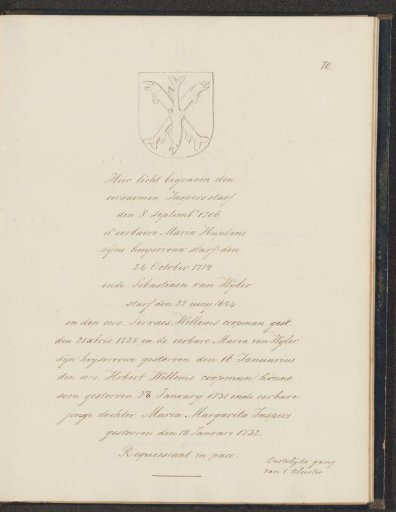 70.
Hier licht begraven den
eersaemen Jaspers starf
den 8 Septemb 1706
d'eerbaere Maria
sijne huysvrouw starf den
24 October 1719
ende Sebastiaen van Wyler
starf den 22 juny 1694
en den eers. Servaes Willems coopman gest
den 21 xbris 1723 en de eerbare Maria van Wyler
syn huysvrouw gestorven den 16 Januarius
den eers. Hubert Willems coopman hunne
soon gestorven 28 January 1731 ende eerbare
jonge dochter Maria Margareta Jaspers
gestorven den 19 Januari 1732.
Requiescant in pace.
Oostelijke gang
van 't klooster